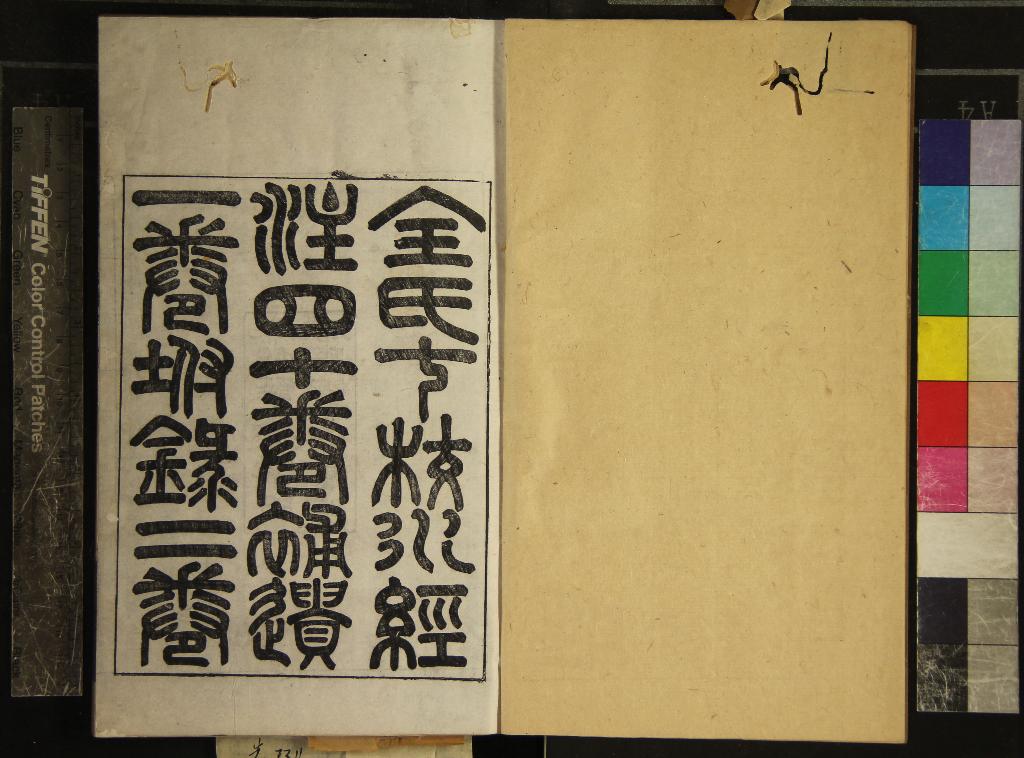 全氏七校水經
注四十卷補遺
一卷坿錄二卷
TIFFEN Color Control Patches
Centimetres
Blue Cyan Green Yellow
A4